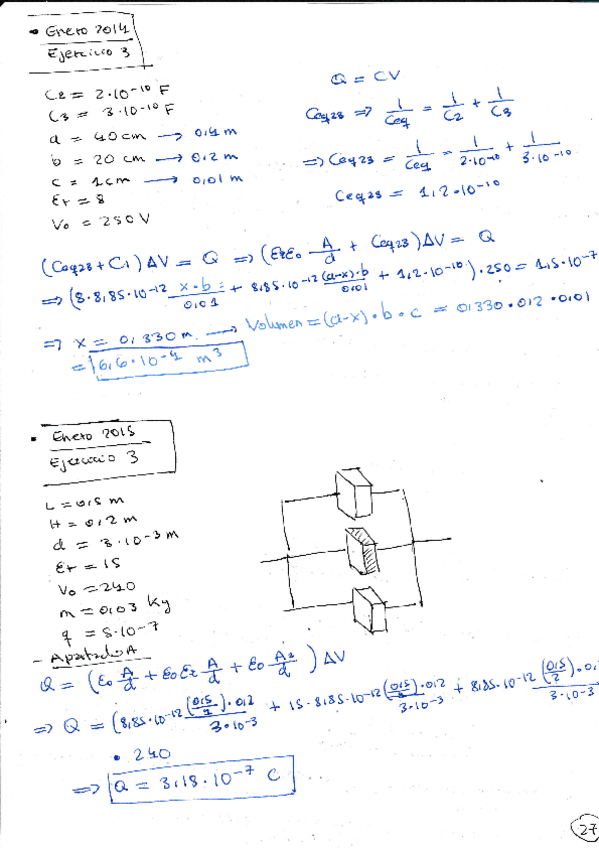 • Enero 2014
Ejercicio 3
C2 = 2·10^-10 F
C3 = 3·10^-10 F
a = 40cm → 0,4 m
b = 20 cm → 0,2 m
c = 1cm → 0,01 m
Er = 8
Vo = 250 V
Q = CV
Ceq23 => 1/Ceq = 1/C2 + 1/C3
=> Ceq23 = 1/Ceq = 1/2·10^-10 + 1/3·10^-10
Ceq23 = 1,2·10^-10
(Ceq23 + C1) ΔV = Q => (ErEo A/d + Ceq23) ΔV = Q
=> (8·8,85·10^-12 x·b/0,01 + 8,85·10^-12 (a-x)·b/0,01 + 1,2·10^-10)·250 = 1,5·10^-7
=> x = 0,330 m. → Volumen = (a-x)·b·c = 0,330·0,2·0,01
= 6,6·10^-4 m^3
• Enero 2015
Ejercicio 3
L = 0,5 m
H = 0,2 m
d = 3·10^-3 m
Er = 15
Vo = 240
m = 0,03 Kg
q = 5·10^-7
- Apartado A
Q = (Eo A/d + EoEr A/d + Eo A2/d) ΔV
=> Q = (8,85·10^-12 ·0,2/3·10^-3 + 15·8,85·10^-12 ·0,2/3·10^-3 + 8,85·10^-12 (0,5/2)·0,/3·10^-3
· 240
=> Q = 3,18·10^-7 C
27